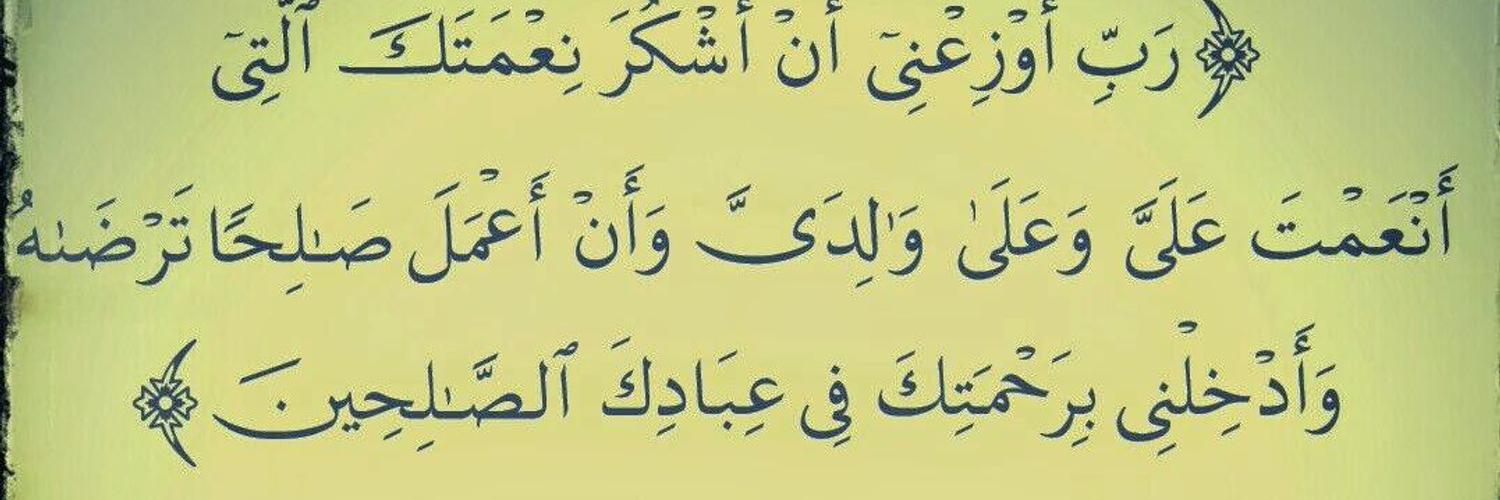 ﴿رَبِّ أَوْزِعْنِىٓ أَنْ أَشْكُرَ نِعْمَتَكَ ٱلَّتِىٓ
أَنْعَمْتَ عَلَىَّ وَعَلَىٰ وَٰلِدَىَّ وَأَنْ أَعْمَلَ صَـٰلِحًا تَرْضَىٰهُ
وَأَدْخِلْنِى بِرَحْمَتِكَ فِى عِبَادِكَ ٱلصَّـٰلِحِينَ﴾